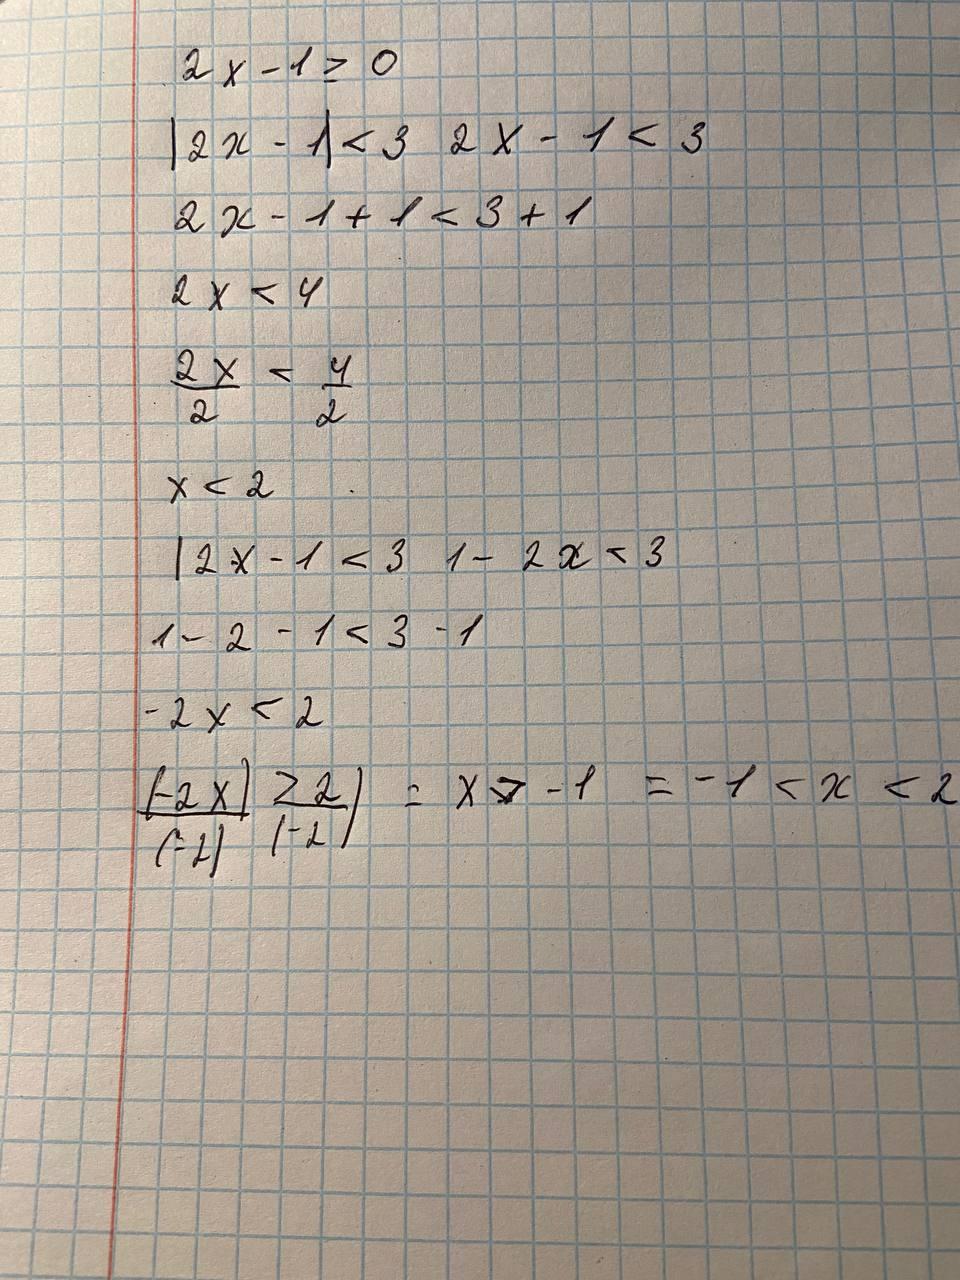 2x - 1 ≥ 0
|2x - 1| < 3 2x - 1 < 3
2x - 1 + 1 < 3 + 1
2x < 4
2x/2 < 4/2
x < 2
|2x - 1 < 3 1 - 2x < 3
1 - 2 - 1 < 3 - 1
-2x < 2
(-2x)/(-2) > 2/(-2) = x > -1 = -1 < x < 2